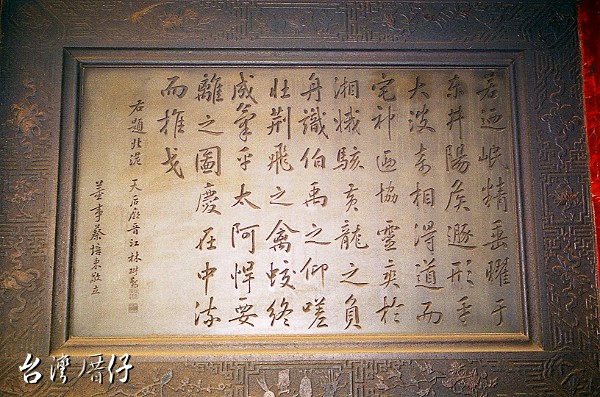 若迺岷精垂曜于
東井陽侯遯形乎
大波奇相得道而
宅神迺協靈爽於
湘娥駭黃龍之負
舟識伯禹之仰嗟
壯荊飛之禽蛟終
成氣乎太阿悍要
離之圖慶在中流
而推戈
右題北港 天后廟晉江林
董事蔡培東敬立
台灣厝仔